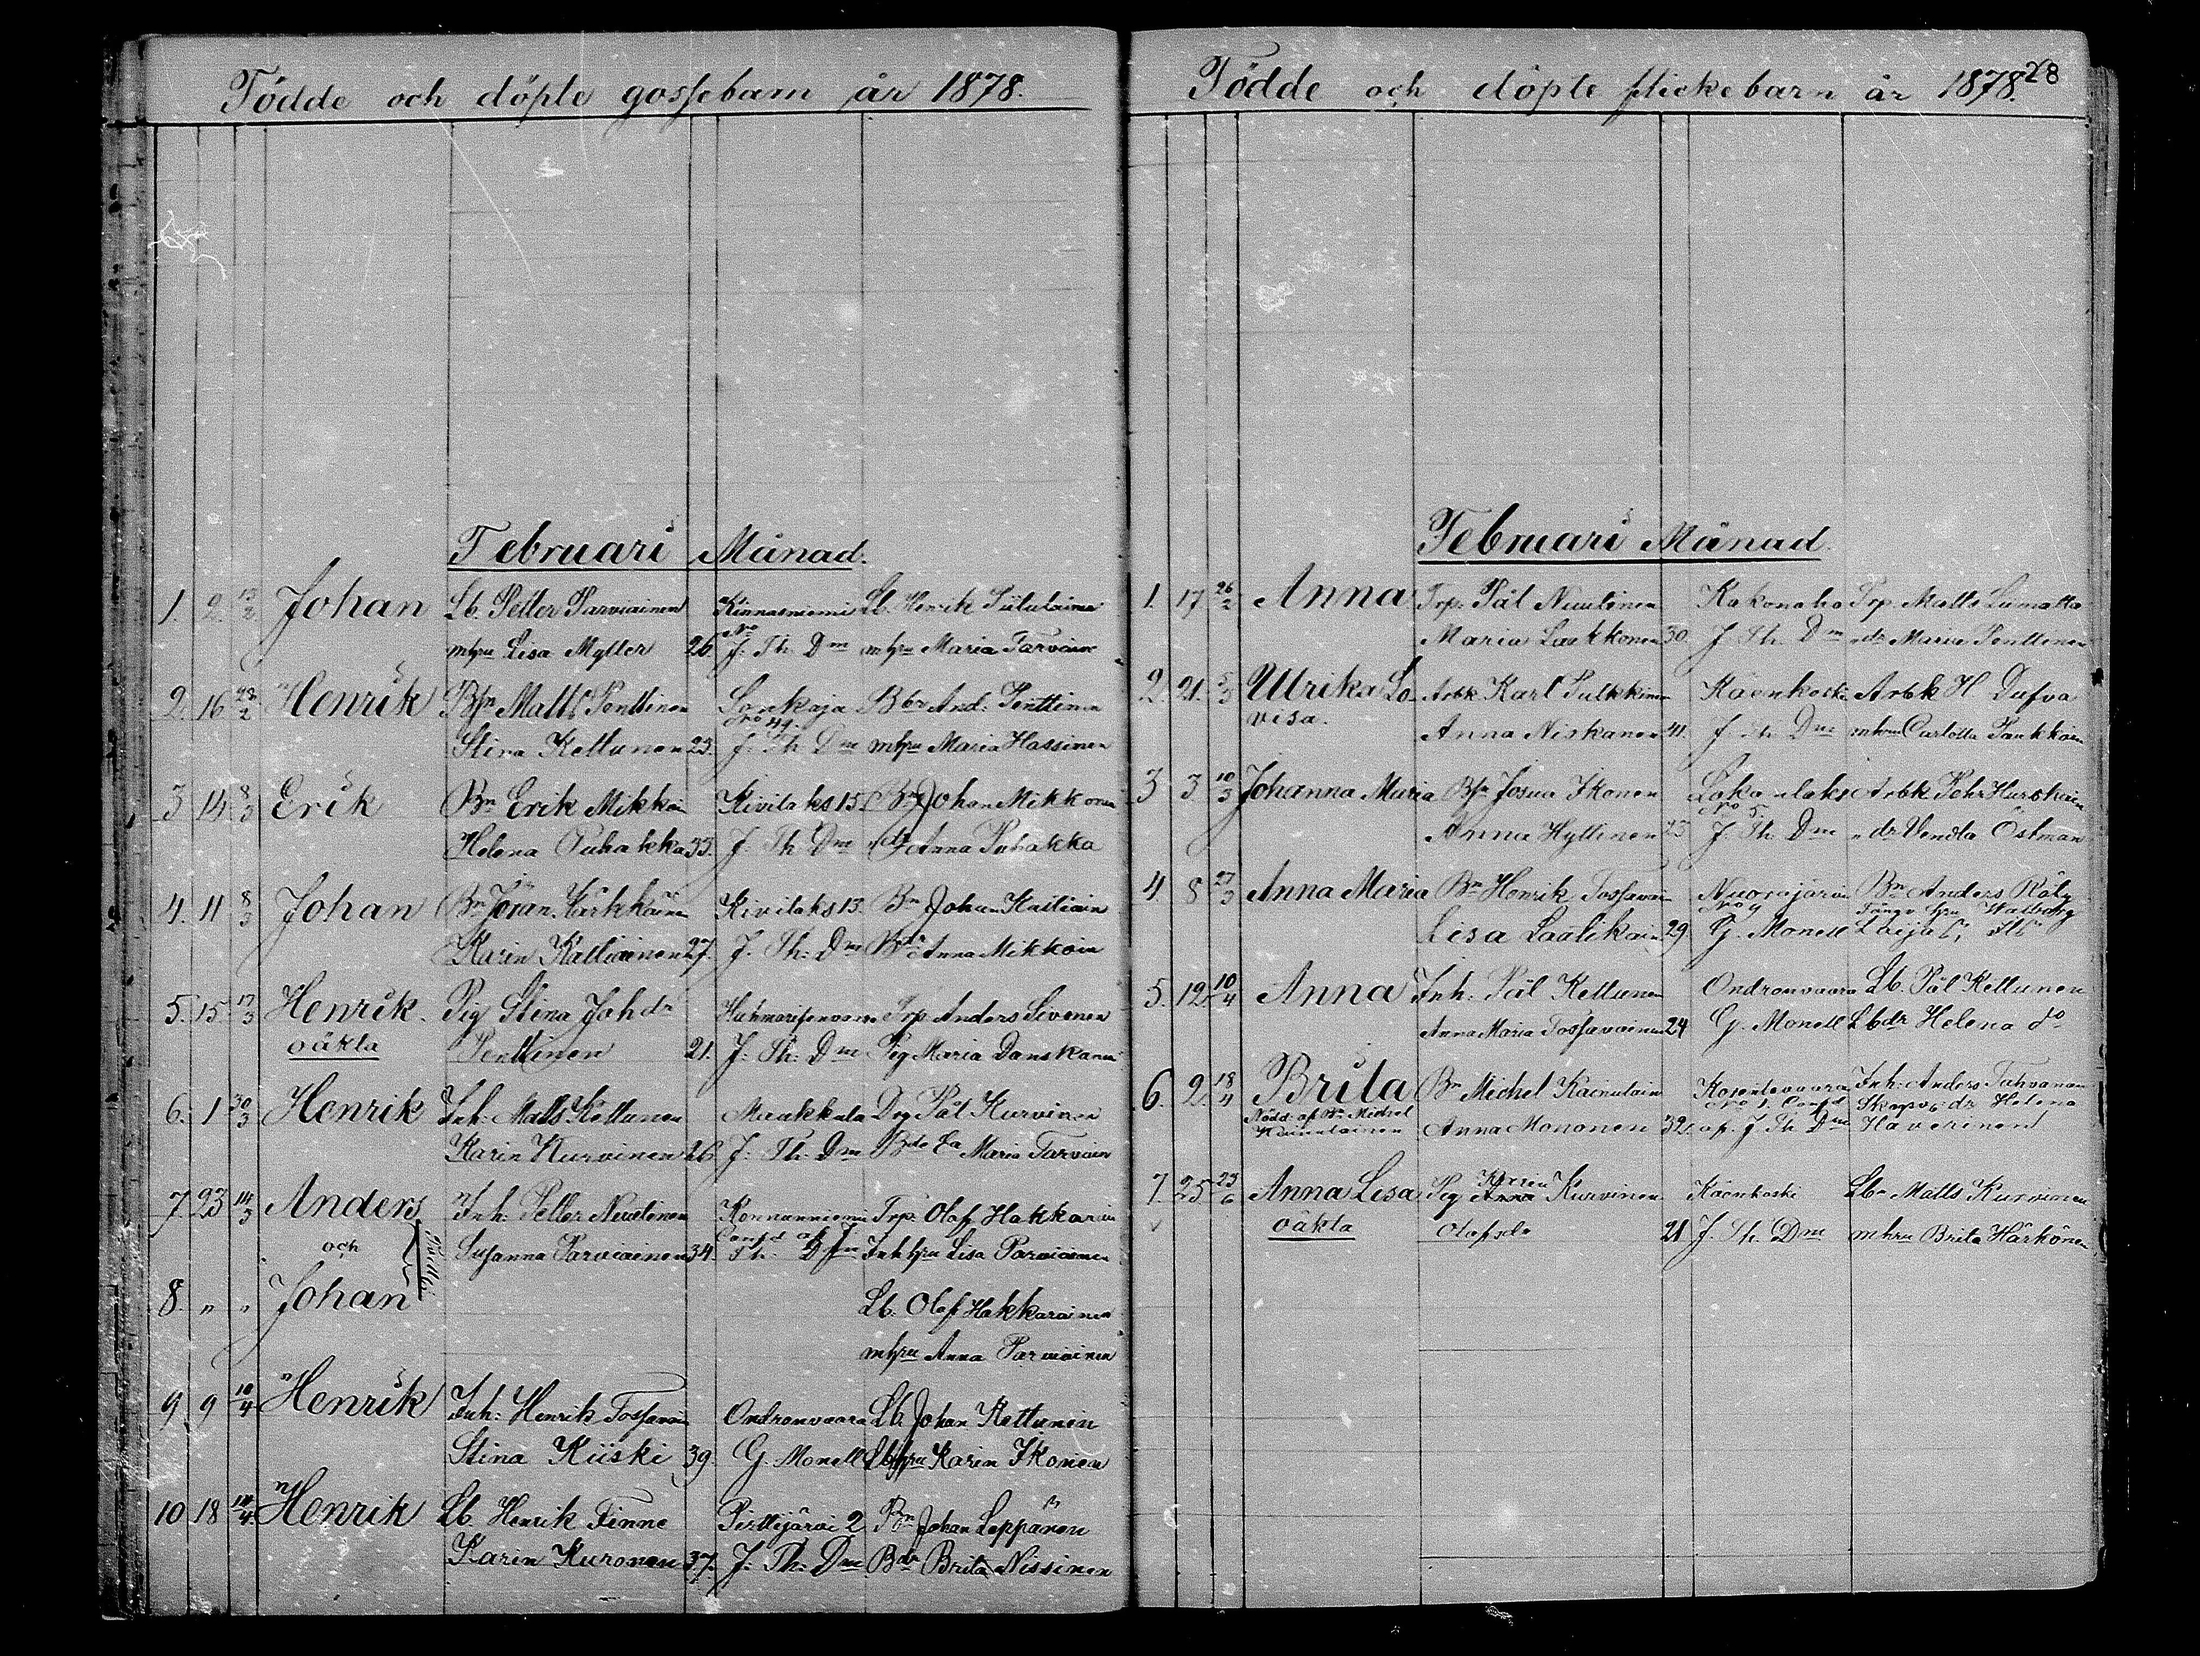 Födde och döpte gossebarn år 1878.
Februari Månad.
1. 2. 13/2 Johan Lb. Petter Parviainen Kinnasniemi Lb. Henrik Piitulainen
mhru Lisa Myller 26 J. Th. Dm mhru Maria Tarvain
2. 16 23/2 Henrik Bsn Matts Penttinen Sonkaja Bbr And: Penttinen
No 49.
Stina Kettunen 23. J. Th Dm mhru Maria Hassinen
3 14 8/3 Erik Bn Erik Mikkoin Kivilaks 15 Bn Johan Mikkonen
Helena Puhakka 33. J. Th Dm Anna Puhakka
4. 11 8/3 Johan Bn Jöran Kärkkäinen Kivilaks 13. Bn Johan Kaitiain
Karin Kattiainen 27. J. Th: Dm Bdr Anna Mikkoin
5. 15 17/3 Henrik Pig Stina Joh dr Trp Anders Sivonen
oäkta Penttinen 21. J. Th: Dm Pig Maria Danskanen
6. 1 30/3 Henrik Inh: Matts Kettunen Maukkula Drg Pål Kurvinen
Karin Kurvinen 26 J. Th. Dm Maria Tarvain
7 23 14/3 Anders Inh: Petter Nuutinen Konnunniemi Trp. Olof Hakkarain
och Susanna Parviainen 34. Conf d af J. Th: Dm Inh hru Lisa Parviainen
8. " " Johan Lb. Olof Hakkarainen
mhru Anna Parviainen
9 9 10/4 Henrik Inh: Henrik Tossavain Ondronvaara Lb. Johan Kettunen
Stina Kiiski 39. G. Monell Lbhru Karin Ikonen
10 18 14/4 Henrik Lb Henrik Finne Pirttijärvi 2 Bn Johan Leppänen
Karin Kuronen 37. J. Th: Dm Bdr Brita Nissinen
Födde och döpte flickebarn år 1878. 28
Februari Månad.
1. 17 26/2 Anna Trp. Pål Nuutinen Kakonaho Trp. Matts Lumatta
Maria Laakkonen 30. J Th. Dm " dr Maria Penttinen
2. 21. 5/3 Ulrika Lo- Arbk Karl Pulkkinen Käenkoski Arbk H Dufva
visa. Anna Niskanen 41. J Th Dm mhru Carlotta Pankkoin
3 3 10/3 Johanna Maria Bsn Josua Ikonen Arbk Pehr Hurskain
No 5.
Anna Hyttinen 23 J. Th. Dm " dr Vendla Östman
4 8 27/3 Anna Maria Bn Henrik Tossavain Nuorajärvi Bn Anders Räty
No 4 Walborg
Lisa Laalikain 29 G. Monell
5. 12 10/4 Anna Inh: Pål Kettunen Ondronvaara Lb. Pål Kettunen
Anna Maria Tossavainen 24 G. Monell Lbdr Helena do
6. 2. 18/4 Brita Bn Michel Kainulain Kosentovaara Inh: Anders Tahvanain
Nödd: af Bn Michel No 1 Conf d dr Helena
Kainulainen Anna Mononen 32. af J Th Dm Haverinen
7. 25 23/6 Anna Lisa Pig Karin Anna Kurvinen Käenkoski Lb Matts Kurvinen
oäkta Olofsdr 21 J. Th. Dm mhru Brita Härkönen